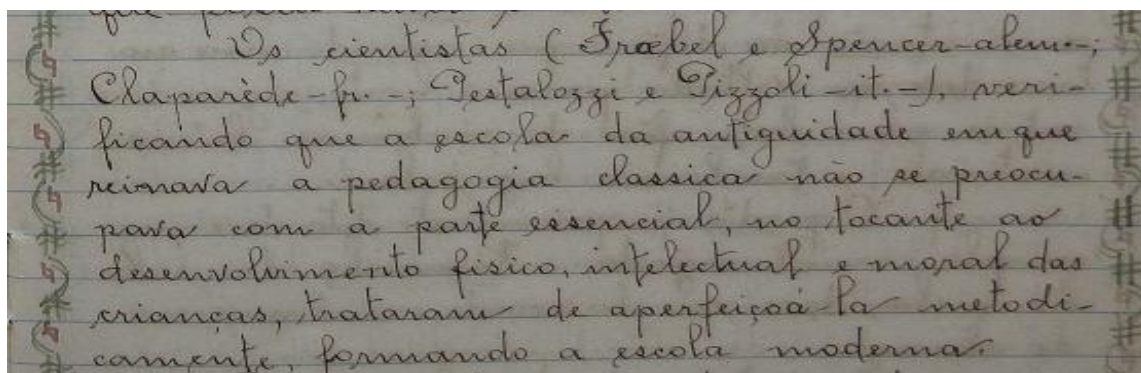 Os cientistas (Frœbel e Spencer-alem.-;
Claparède-fr.-; Pestalozzi e Pizzoli-it.-), veri-
ficando que a escola da antiguidade em que
reinava a pedagogia classica não se preocu-
pava com a parte essencial, no tocante ao
desenvolvimento fisico, intelectual e moral das
crianças, trataram de aperfeiçoá-la metodi-
camente, formando a escola moderna.